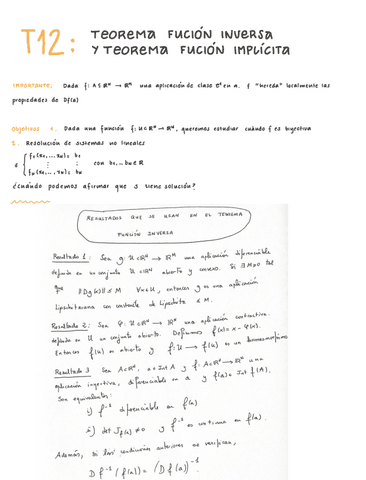 T12: TEOREMA FUCIÓN INVERSA
Y TEOREMA FUCIÓN IMPLÍCITA
IMPORTANTE: Dada f: A ⊆ ℝⁿ → ℝᵐ una aplicación de clase C¹ en a. f "hereda" localmente las
propiedades de Df(a)
Objetivos 1. Dada una función f: U ⊂ ℝⁿ → ℝⁿ, queremos estudiar cuándo f es biyectiva
2. Resolución de sistemas no lineales
f₁(x₁,...,xₙ) = b₁
⋮ ⋮ con b₁...bₙ ∈ ℝ
fₙ(x₁,...,xₙ) = bₙ
¿cuándo podemos afirmar que s tiene solución?
RESULTADOS QUE SE USAN EN EL TEOREMA
FUNCIÓN INVERSA
Resultado 1: Sea g: U ⊂ ℝⁿ → ℝᵐ una aplicación diferenciable
definida en un conjunto U ⊂ ℝⁿ abierto y convexo. Si ∃ M>0 tal
que ‖Dg(u)‖ ≤ M ∀u ∈ U, entonces g es una aplicación
Lipschitziana con constante de Lipschitz ≤ M.
Resultado 2: Sea φ: U ⊂ ℝⁿ → ℝⁿ una aplicación contractiva
definida en U un conjunto abierto. Definimos f(x) = x - φ(x).
Entonces f(U) es abierto y f: U → f(U) es un homeomorfismo
Resultado 3 Sea A ⊂ ℝⁿ, a ∈ Int A y f: A ⊂ ℝⁿ → ℝⁿ una
aplicación inyectiva, diferenciable en a y f(a) ∈ Int f(A).
Son equivalentes:
i) f⁻¹ diferenciable en f(a)
ii) det J_f(a) ≠ 0 y f⁻¹ es continua en f(a).
Además, si las condiciones anteriores se verifican,
D f⁻¹(f(a)) = (D f(a))⁻¹.